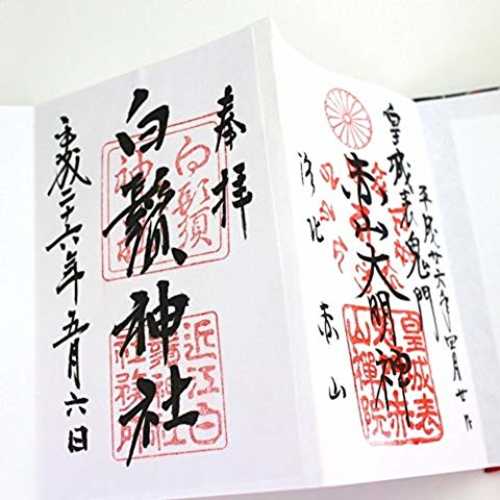 皇城表鬼門
平成廿六年四月廿
赤山大明神
洛北 赤山
皇城表
山禅院
奉拝
白鬚神社
平成二十六年五月六日
近江白
鬚神社
社務所